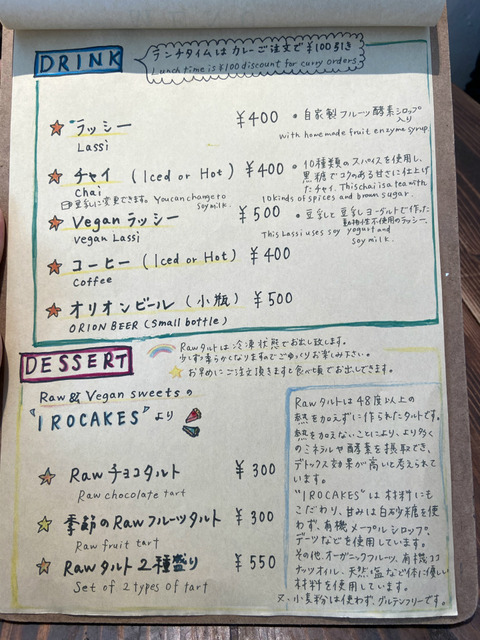 DRINK
ランチタイムは カレーご注文で ¥100引き
Lunch time is ¥100 discount for curry orders
ラッシー ¥400 • 自家製フルーツ酵素シロップ入り
Lassi with homemade fruit enzyme syrup.
チャイ (Iced or Hot) ¥400 • 10種類のスパイスを使用し、
黒糖でコクのある甘さに仕上げ
Chai たチャイ. This chai is a tea with
豆乳に変更できます。 You can change to soy milk. 10 kinds of spices and brown sugar.
Vegan ラッシー ¥500 • 豆乳と豆乳ヨーグルトで作った
動物性不使用のラッシー.
Vegan Lassi This Lassi uses soy yogurt and
soy milk.
コーヒー (Iced or Hot) ¥400
Coffee
オリオンビール (小瓶) ¥500
ORION BEER (small bottle)
DESSERT
Rawタルトは冷凍状態でお出し致します。
少しずつ柔らかくなりますのでごゆっくりお楽しみ下さい。
お早めにご注文頂きますと食べ頃でお出しできます。
Raw & Vegan sweets の
"IROCAKES" より
Raw チョコタルト ¥300
Raw chocolate tart
季節の Raw フルーツタルト ¥300
Raw fruit tart
Raw タルト 2種盛り ¥550
Set of 2 types of tart
Raw タルトは 48度以上の
熱を加えずに作られたタルトです。
熱を加えないことにより、より多く
のミネラルや酵素を摂取でき、
デトックス効果が高いと考えられて
います。
"IROCAKES"は材料にも
こだわり、甘みは白砂糖を使
わず、有機メープルシロップ、
デーツなどを使用しています。
その他、オーガニックフルーツ、有機ココ
ナッツオイル、天然塩など体に優しい
材料を使用しています。
又、小麦粉は使わず、グルテンフリーです。